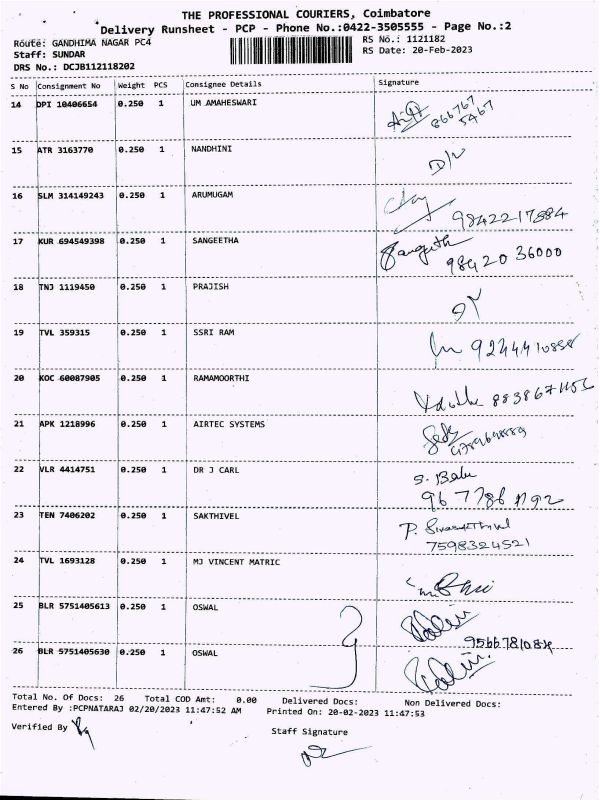 THE PROFESSIONAL COURIERS, Coimbatore
Delivery Runsheet - PCP - Phone No.:0422-3505555 - Page No.:2
Route: GANDHIMA NAGAR PC4 RS No.: 1121182
Staff: SUNDAR RS Date: 20-Feb-2023
DRS No.: DCJB112118202
S No Consignment No Weight PCS Consignee Details Signature
14 DPI 10406654 0.250 1 UM AMAHESWARI
866767
5467
15 ATR 3163770 0.250 1 NANDHINI
16 SLM 314149243 0.250 1 ARUMUGAM
9842217584
17 KUR 694549398 0.250 1 SANGEETHA
Sangeeth 9842036000
18 TNJ 1119450 0.250 1 PRAJISH
19 TVL 359315 0.250 1 SSRI RAM
20 KOC 60087905 0.250 1 RAMAMOORTHI
21 APK 1218996 0.250 1 AIRTEC SYSTEMS
22 VLR 4414751 0.250 1 DR J CARL
S. Babu
23 TEN 7406202 0.250 1 SAKTHIVEL
7598324521
24 TVL 1693128 0.250 1 MJ VINCENT MATRIC
25 BLR 5751405613 0.250 1 OSWAL
26 BLR 5751405630 0.250 1 OSWAL
Total No. Of Docs: 26 Total COD Amt: 0.00 Delivered Docs: Non Delivered Docs:
Entered By :PCPNATARAJ 02/20/2023 11:47:52 AM Printed On: 20-02-2023 11:47:53
Verified By
Staff Signature